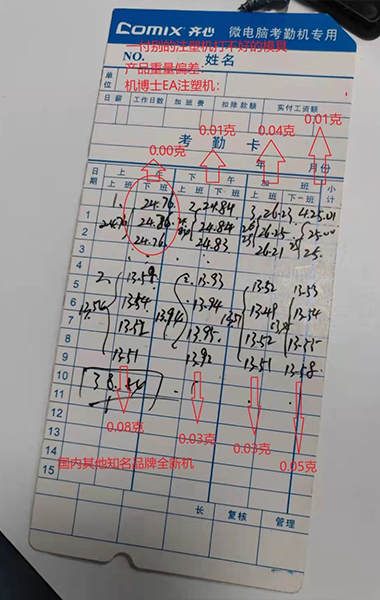 COMIX 齐心 微电脑考勤机专用
一付别的注塑机打不好的模具
NO. 姓名
产品重量偏差：
单位
机博士EA注塑机：
日薪 工作日数 加班费 扣除款额 实付工资额
0.01克
0.04克
0.01克
考勤卡
0.00克
年 月份
日期 上午 下午 加班 小计
上班 下班 上班 下班 上班 下班
1. 24.76 2. 24.84 3. 26.23 4. 25.01
1 24.76 24.84 26.25 25.00
2 24.76 24.83 26.21 25.
3
4
5 2. 13.93 13.52 13.53
6 13.54 13.94 13.49 13.54
7 13.52 13.95 13.52 13.55
8 13.51 13.92 13.51 13.58
9
10
11
12
0.08克
0.03克
0.03克
0.05克
13
14 国内其他知名品牌全新机
15
长 复核 管理